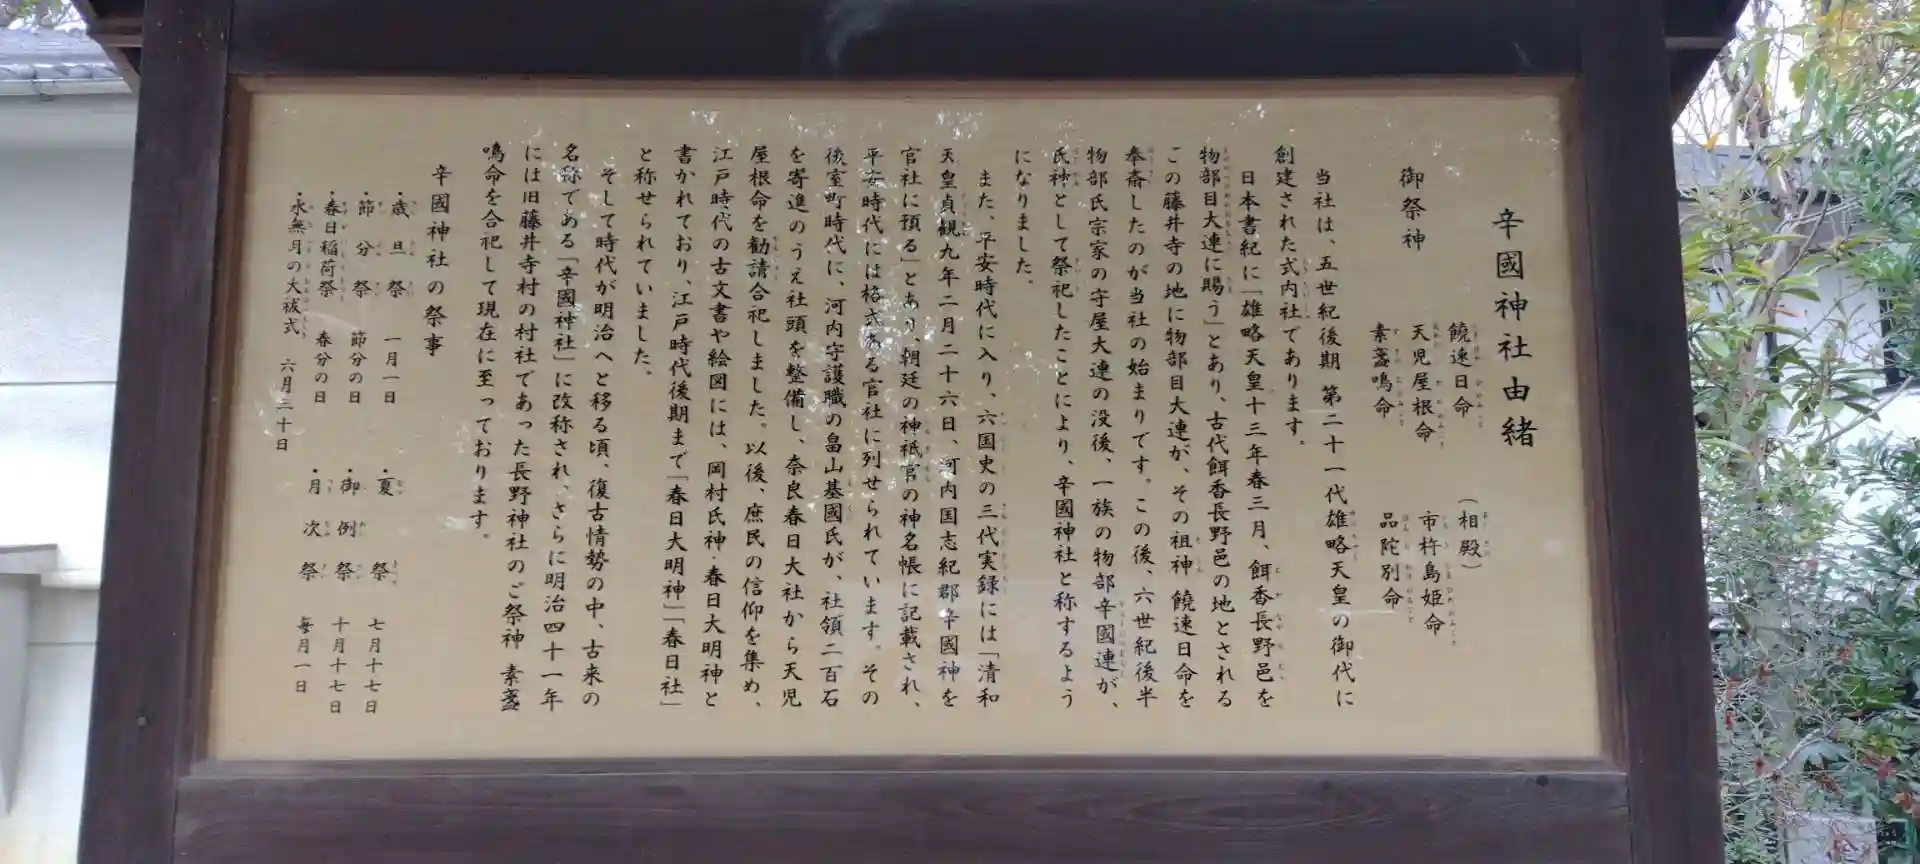 辛國神社由緒
御祭神
饒速日命
天児屋根命
素盞鳴命
（相殿）
市杵島姫命
品陀別命
当社は、五世紀後期 第二十一代雄略天皇の御代に
創建された式内社であります。
日本書紀に「雄略天皇十三年春三月、餌香長野邑を
物部目大連に賜う」とあり、古代餌香長野邑の地とされる
この藤井寺の地に物部目大連が、その祖神 饒速日命を
奉斎したのが当社の始まりです。この後、六世紀後半
物部氏宗家の守屋大連の没後、一族の物部辛國連が、
氏神として祭祀したことにより、辛國神社と称するよう
になりました。
また、平安時代に入り、六国史の三代実録には「清和
天皇貞観九年二月二十六日、河内国志紀郡辛國神を
官社に預る」とあり、朝廷の神祇官の神名帳に記載され、
平安時代には格式ある官社に列せられています。その
後室町時代に、河内守護職の畠山基國氏が、社領二百石
を寄進のうえ社頭を整備し、奈良春日大社から天児
屋根命を勧請合祀しました。以後、庶民の信仰を集め、
江戸時代の古文書や絵図には、岡村氏神・春日大明神と
書かれており、江戸時代後期まで「春日大明神」「春日社」
と称せられていました。
そして時代が明治へと移る頃、復古情勢の中、古来の
名称である「辛國神社」に改称され、さらに明治四十一年
には旧藤井寺村の村社であった長野神社のご祭神 素盞
鳴命を合祀して現在に至っております。
辛國神社の祭事
・歳旦祭 一月一日
・節分祭 節分の日
・春日稲荷祭 春分の日
・水無月の大祓式 六月三十日
・夏祭 七月十七日
・御例祭 十月十七日
・月次祭 毎月一日